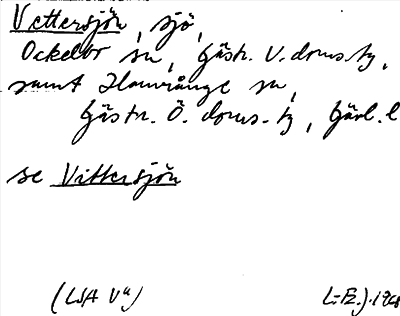 Vettersjön, sjö,
Ockelbo sn, Gästr. V. doms.-tg,
samt Hamrånge sn,
Gästr. Ö. doms.-tg, Gävl. l
se Vittersjön
(LSA V